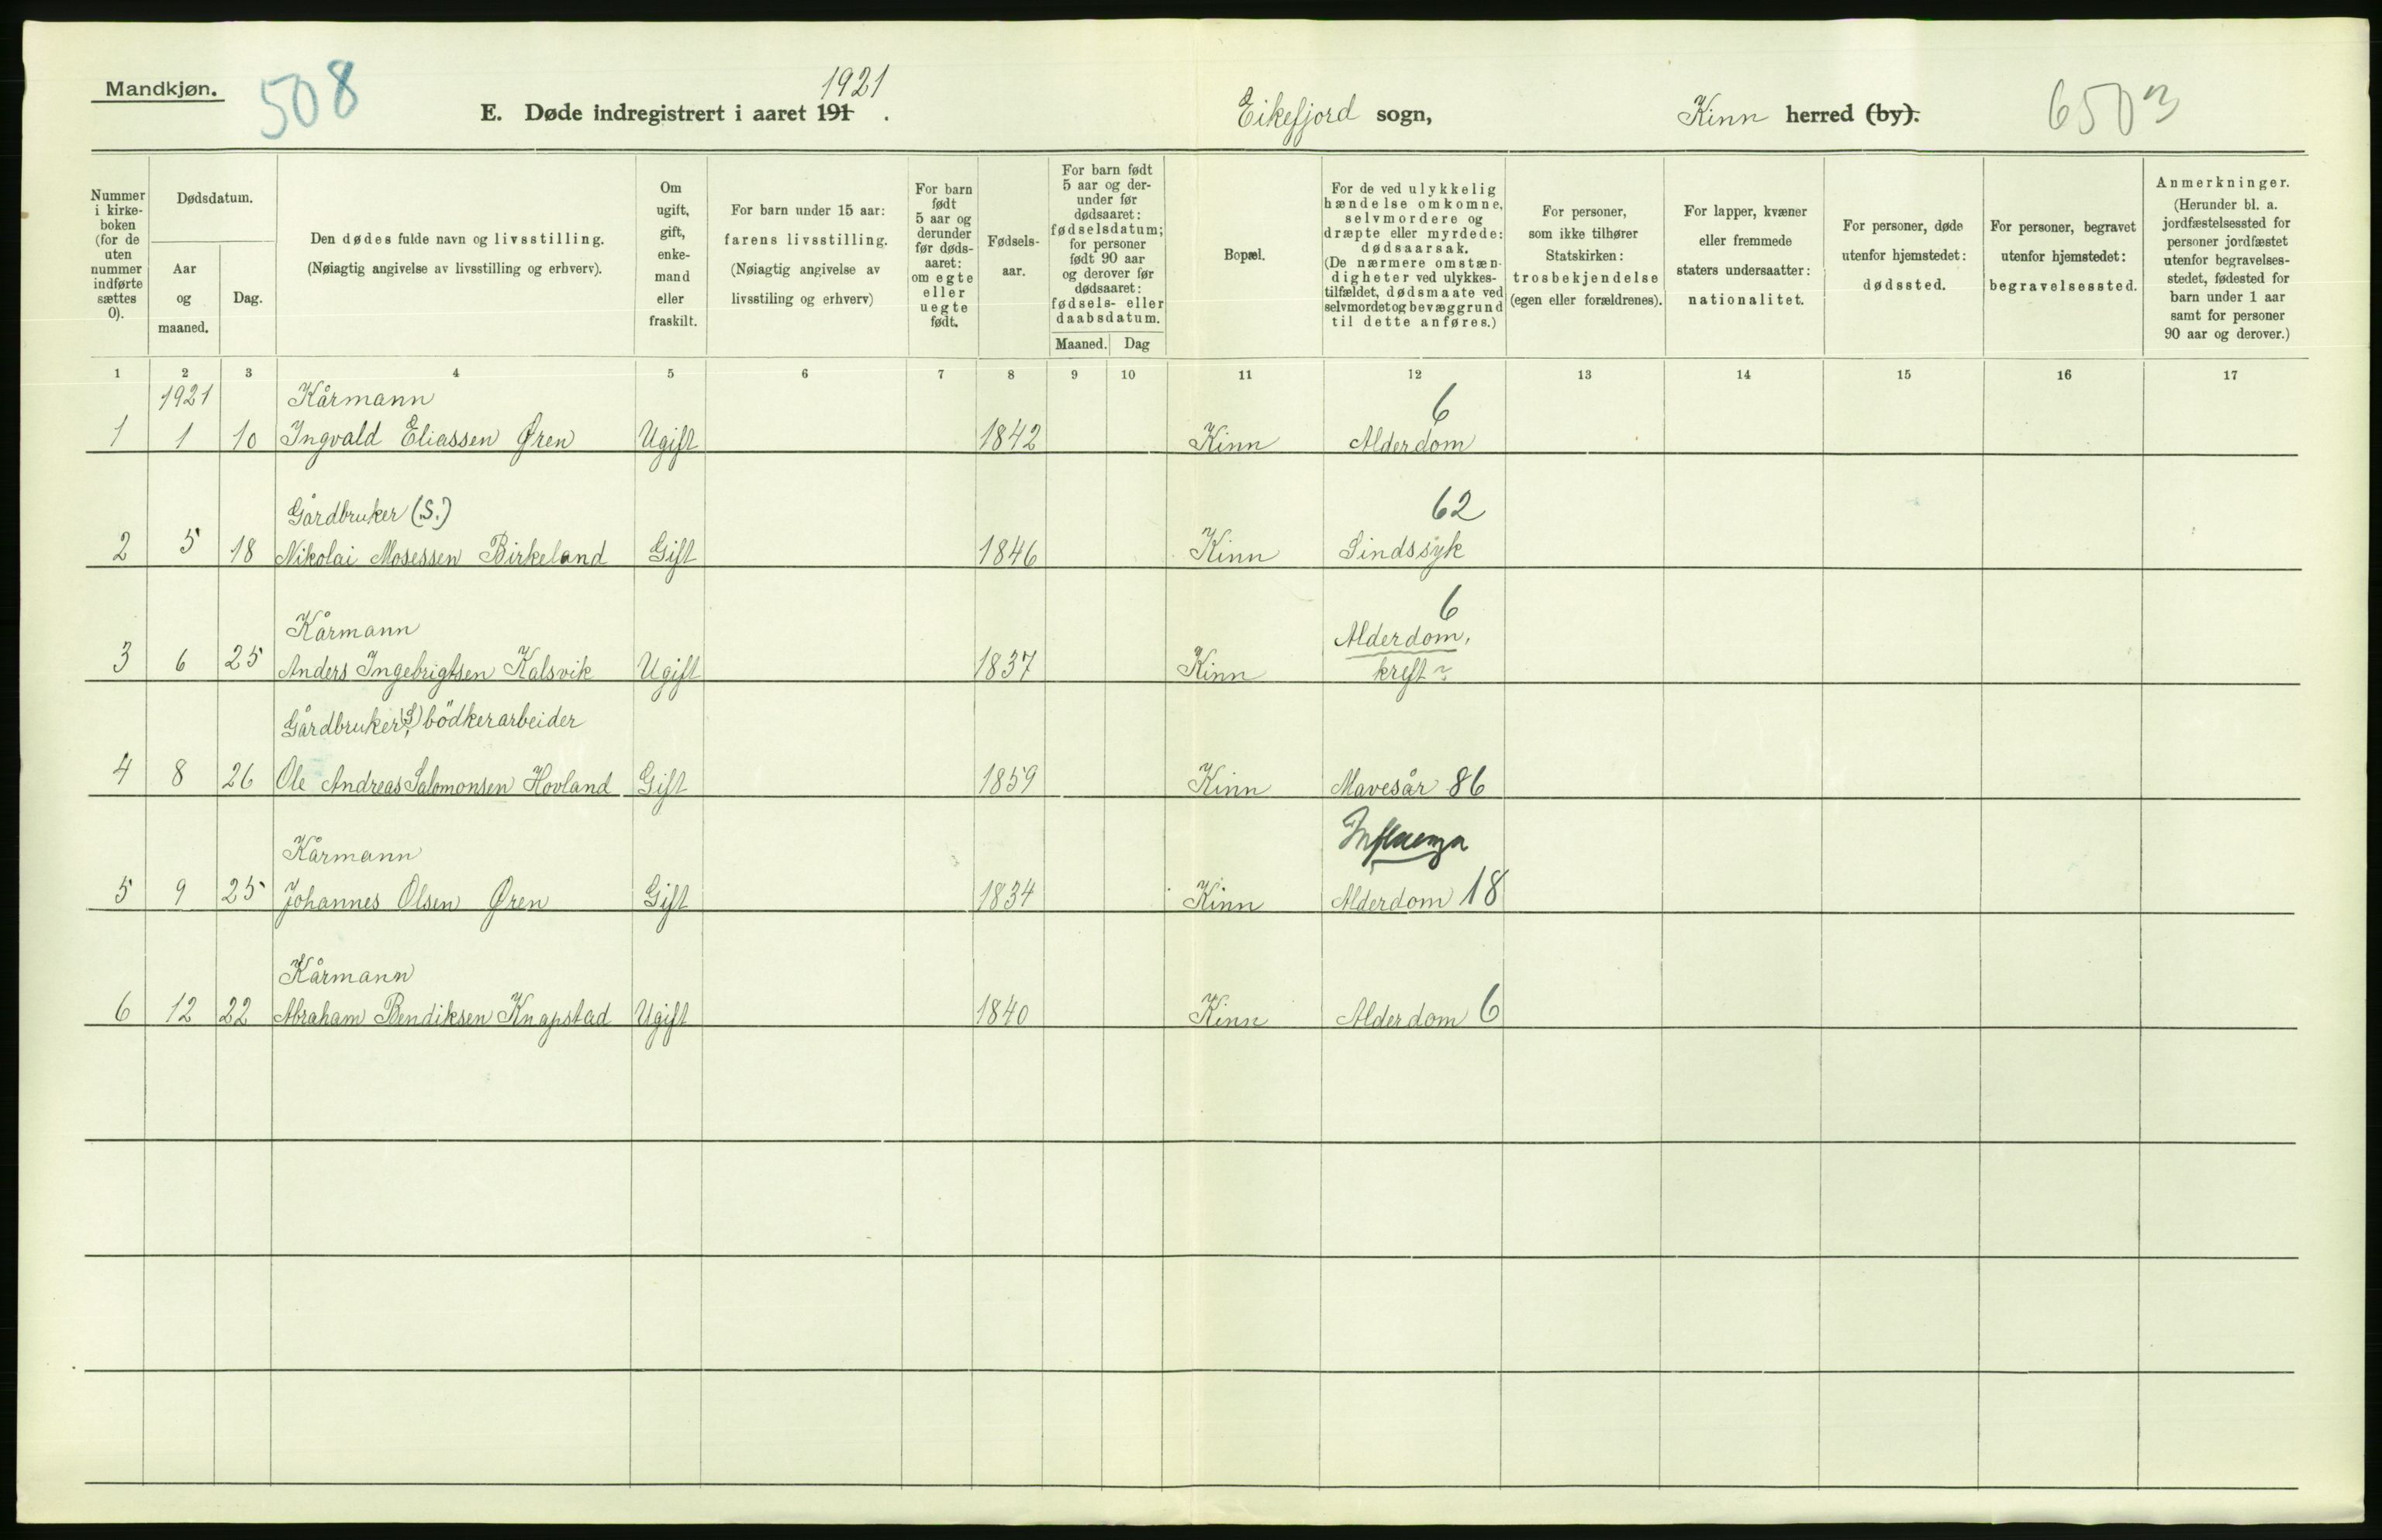 Mandkjøn.
508
E. Døde indregistrert i aaret 191 .
1921
Eikefjord sogn,
Kinn herred (by).
6503
Nummer
i kirke-
boken
(for de
uten
nummer
indførte
sættes
0).
Dødsdatum.
Aar
og
maaned.
Dag.
Den dødes fulde navn og livsstilling.
(Nøiagtig angivelse av livsstilling og erhverv).
Om
ugift,
gift,
enke-
mand
eller
fraskilt.
For barn under 15 aar:
farens livsstilling.
(Nøiagtig angivelse av
livsstiling og erhverv)
For barn
født
5 aar og
derunder
før døds-
aaret:
om egte
eller
uegte
født.
Fødsels-
aar.
For barn født
5 aar og der-
under før
dødsaaret:
fødselsdatum;
for personer
født 90 aar
og derover før
dødsaaret:
fødsels- eller
daabsdatum.
Maaned. Dag
Bopæl.
For de ved ulykkelig
hændelse omkomne,
selvmordere og
dræpte eller myrdede:
dødsaarsak.
(De nærmere omstæn-
digheter ved ulykkes-
tilfældet, dødsmaate ved
selvmordet og bevæggrund
til dette anføres.)
For personer,
som ikke tilhører
Statskirken:
trosbekjendelse
(egen eller forældrenes).
For lapper, kvæner
eller fremmede
staters undersaatter:
nationalitet.
For personer, døde
utenfor hjemstedet:
dødssted.
For personer, begravet
utenfor hjemstedet:
begravelsessted.
Anmerkninger.
(Herunder bl. a.
jordfæstelsessted for
personer jordfæstet
utenfor begravelses-
stedet, fødested for
barn under 1 aar
samt for personer
90 aar og derover.)
1 2 3 4 5 6 7 8 9 10 11 12 13 14 15 16 17
1921 Kårmann 6
1 1 10 Ingvald Eliassen Øren Ugift 1842 Kinn Alderdom
Gårdbruker (S.) 62
2 5 18 Nikolai Mosessen Birkeland Gift 1846 Kinn Sindssyk
6
Kårmann Alderdom,
3 6 25 Anders Ingebrigtsen Kalsvik Ugift 1837 Kinn kreft ~
Gårdbruker (S), bödkerarbeider
4 8 26 Ole Andreas Salomonsen Hovland Gift 1859 Kinn Mavesår 86
Kårmann Influenza
5 9 25 Johannes Olsen Øren Gift 1834 Kinn Alderdom 18
Kårmann
6 12 22 Abraham Bendiksen Knapstad Ugift 1840 Kinn Alderdom 6